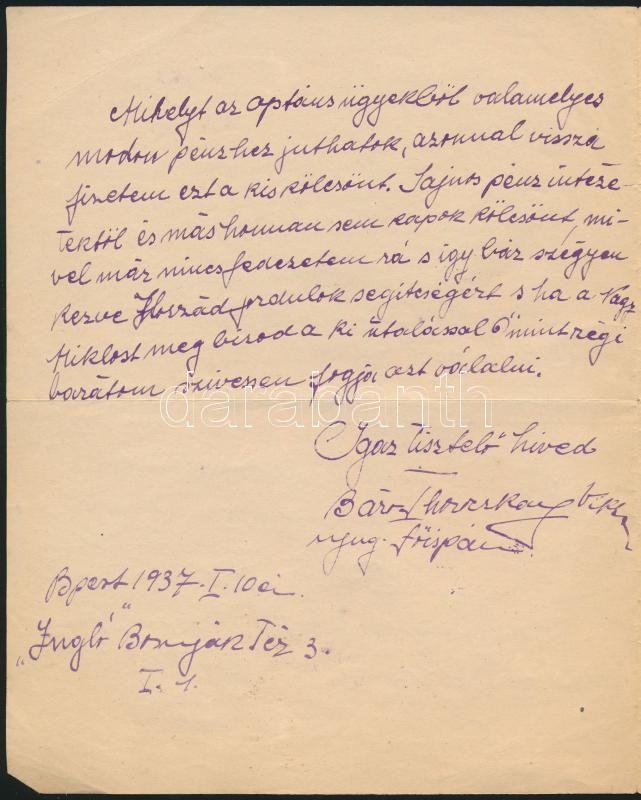 Mihelyt az optáns ügyekből valamelyes
modon pénzhez juthatok, azonnal vissza
fizetem ezt a kis kölcsönt. Sajnos pénz intéze-
tektöl és más honnan sem kapok kölcsönt, mi-
vel már nincs fedezetem rá s igy bár szégyen
kezve Hozzád fordulok segitségért s ha a Nagy
Miklost meg birod a ki útalással Ö mint régi
barátom szivessen fogja azt válalni.
darabanth
Igaz tisztelő hived
Báró
nyug. főispán
Bpest 1937. I. 10én.
"Zugló" Bosnyák Tér 3.
I. 1.